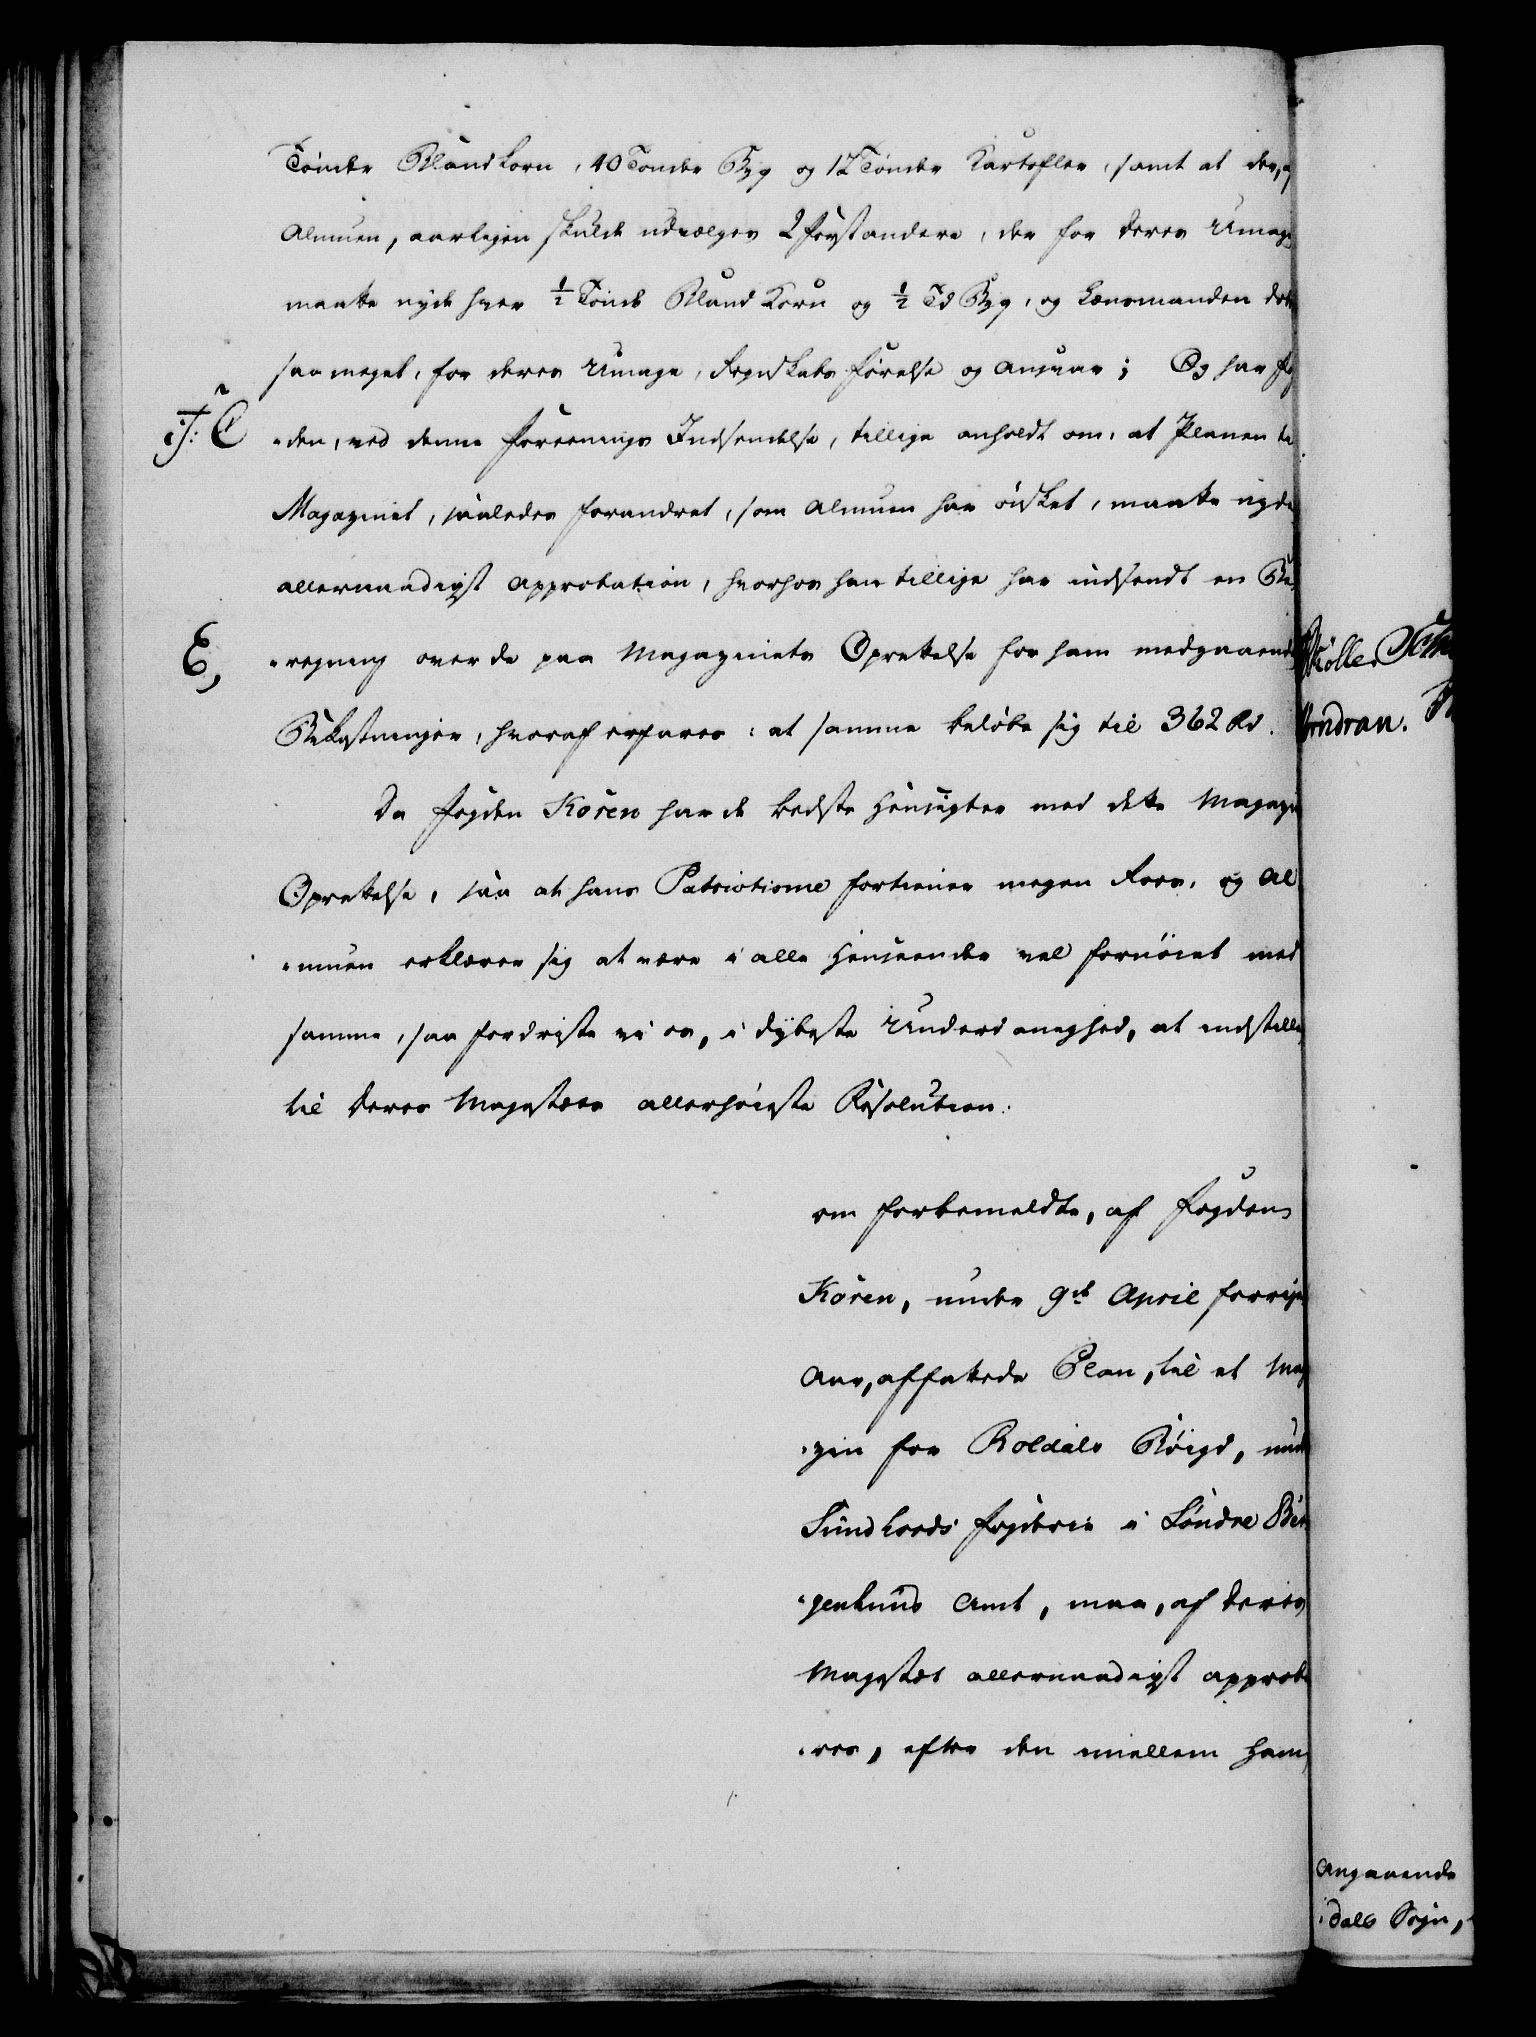 Tønder Blandkorn, 40 Tønder Byg og 12 Tønder Kartofler, samt at der, af
Almuen, aarligen skulde udvælges 2 Forstandere, der for deres Umage
maatte nyde hver ½ Tønde Bland Korn og ½ Td Byg, og Lensmanden dob
saa meget, for deres Umage, Regnskabs Førelse og Ansvar; Og har Fog
-den, ved denne Foreenings Indsendelse, tillige anholdt om, at Planen til
Magazinet, saaledes forandret, som Almuen har ønsket, maatte nyde
allernaadigst Approbation, hvorhos han tillige har indsendt en Be
E,
-regning over de paa Magazinets Oprettelse for ham medgaaende
Bekostninger, hvoraf erfares: at samme beløbe sig til 362 Rd.
Da Fogden Koren har de bedste Hensigter med dette Magazin
Oprettelse, saa at hans Patriotisme fortiener megen Roes, og Al
-muen erklærer sig at være i alle Henseender vel fornøiet med
samme, saa fordriste vi os, i dybeste Underdanighed, at indstille
til Deres Majestæts allerhøieste Resolution:
om forbemeldte, af Fogden
Koren, under 9de April forrige
Aar, affattede Plan, til et Mag
-zin for Roldals Bøigd, under
Sundhords Fogderie i Søndre Ber
-genhuus Amt, maa, af Deres
Majestæt allernaadigst approbe
-res, efter den imellem ham
Angaaende
-dals Sogn,